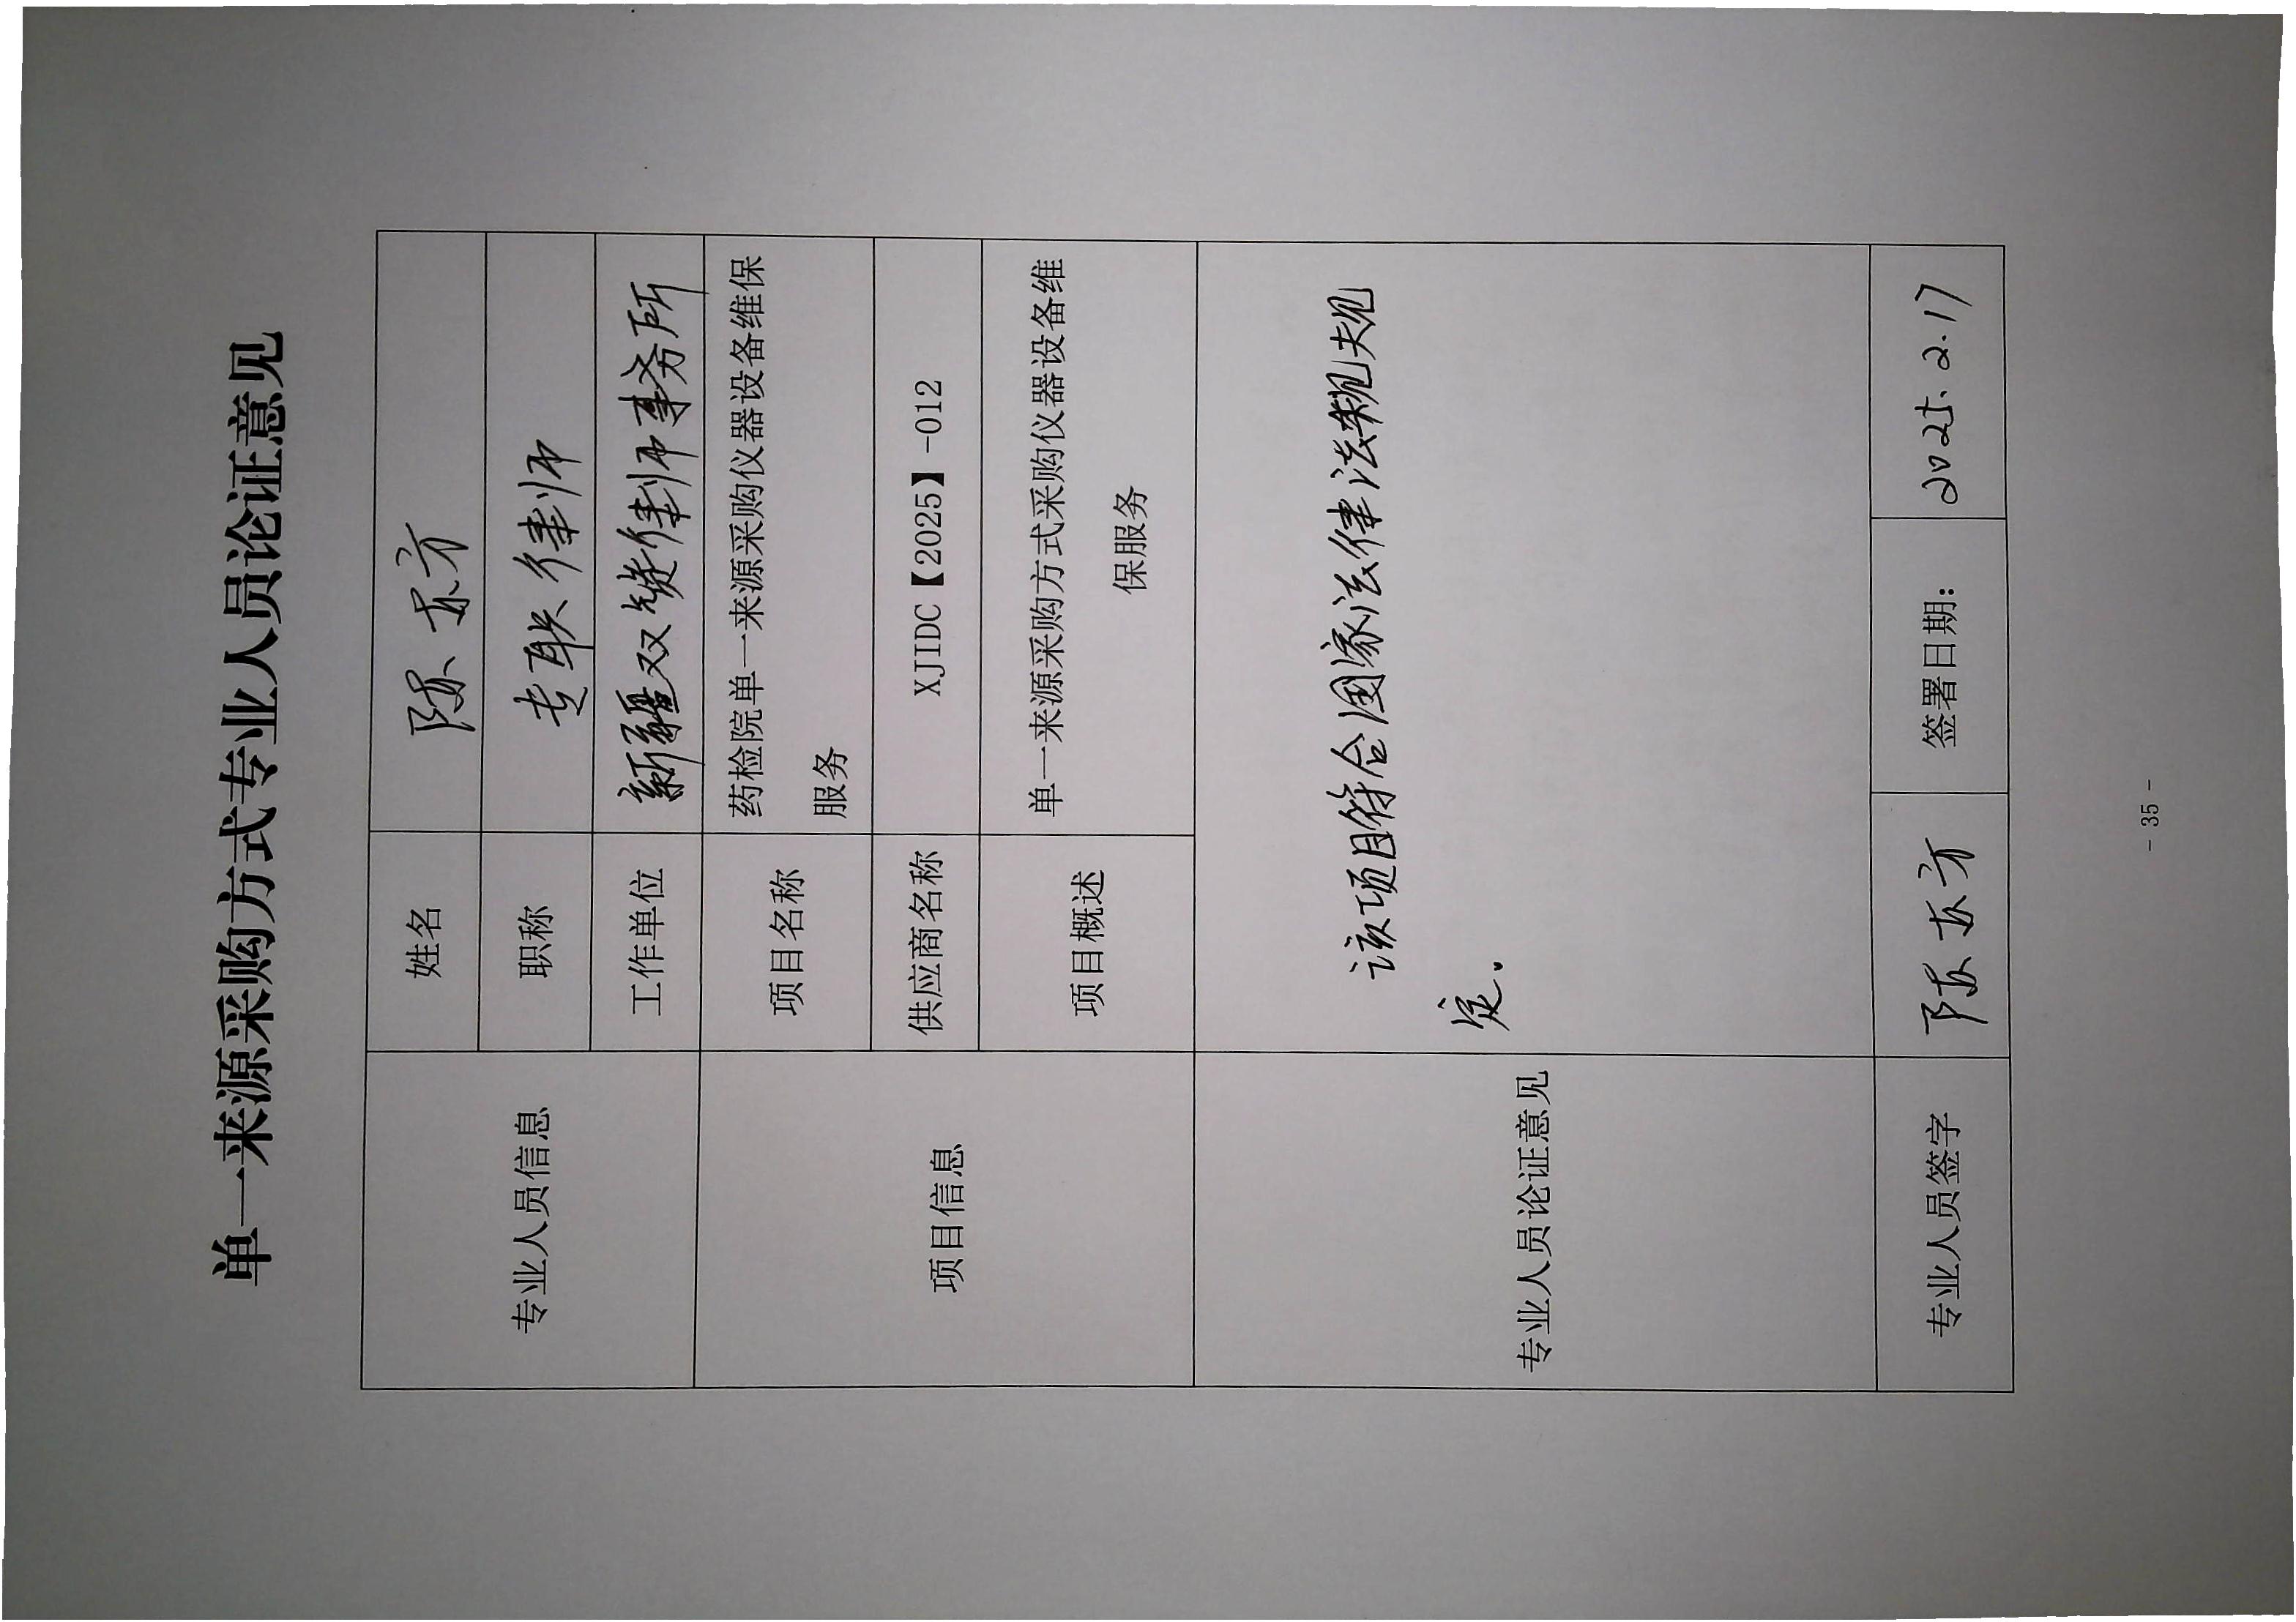 单一来源采购方式专业人员论证意见
专业人员信息
姓名
陈东方
职称
专职律师
工作单位
新疆双健律师事务所
项目信息
项目名称
药检院单一来源采购仪器设备维保
服务
供应商名称
XJIDC【2025】-012
项目概述
单一来源采购方式采购仪器设备维
保服务
专业人员论证意见
该项目符合国家法律法规规
定。
专业人员签字
陈东方
签署日期:
2025.2.17
- 35 -